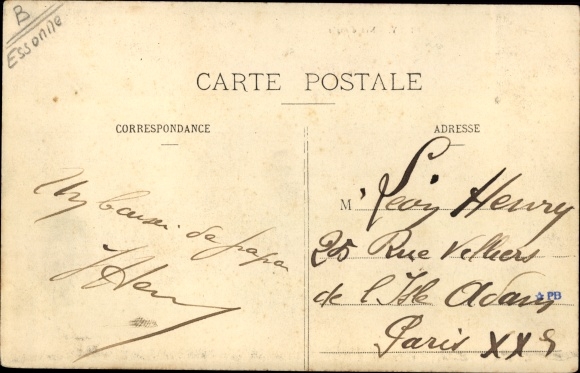 B
Essonne
CARTE POSTALE
CORRESPONDANCE
ADRESSE
Un baiser de papa
Henry
M Léon Henry
25 Rue Villiers
de l'Isle Adam
PB
Paris XXe